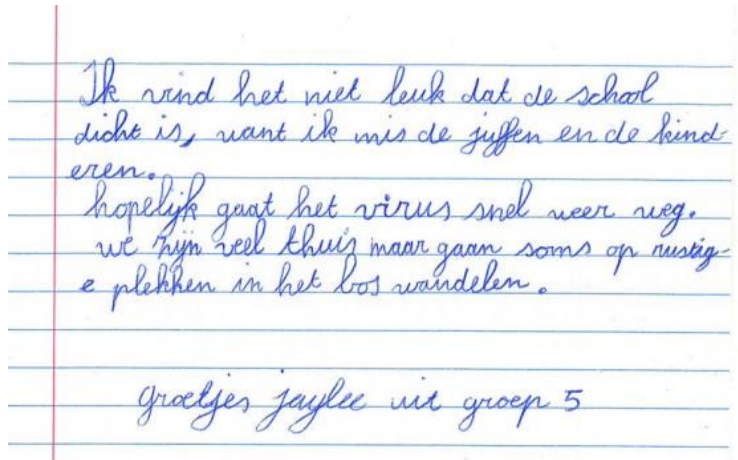 Ik vind het niet leuk dat de school
dicht is, want ik mis de juffen en de kind-
eren.
hopelijk gaat het virus snel weer weg.
we zijn veel thuis maar gaan soms op rustig-
e plekken in het bos wandelen.
groetjes jaylee uit groep 5